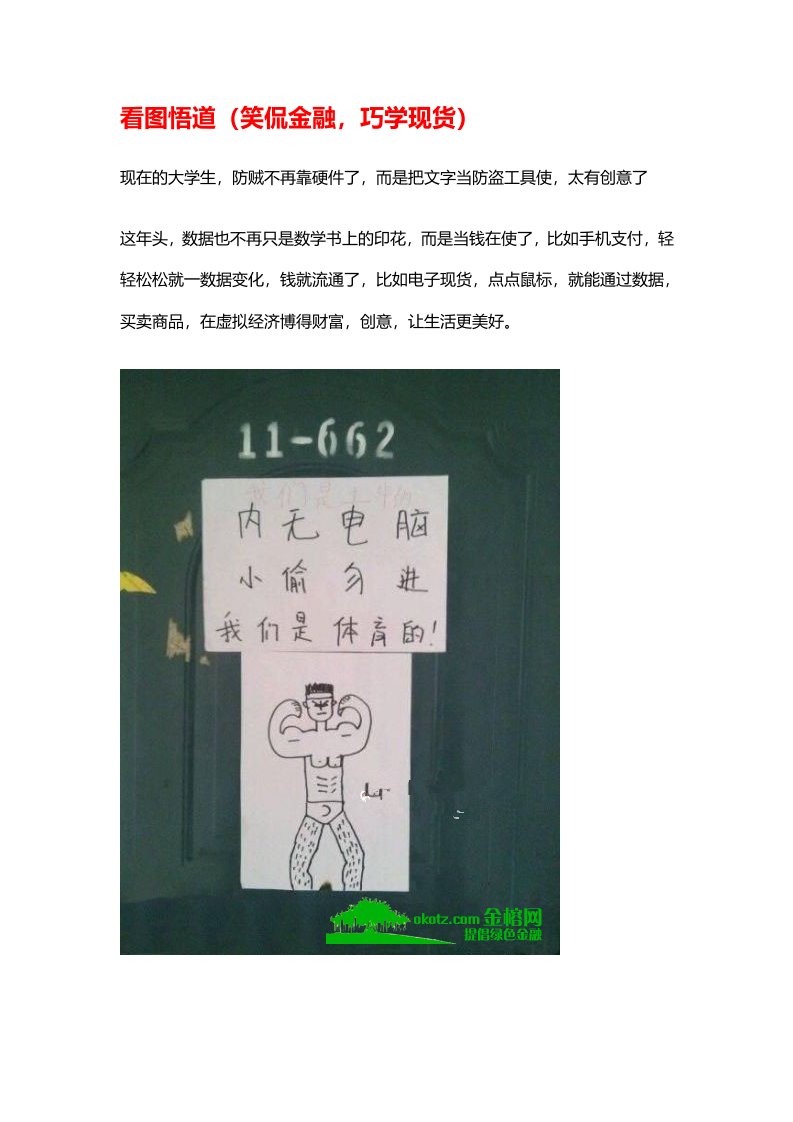 看图悟道（笑侃金融，巧学现货）
现在的大学生，防贼不再靠硬件了，而是把文字当防盗工具使，太有创意了
这年头，数据也不再只是数学书上的印花，而是当钱在使了，比如手机支付，轻
轻松松就一数据变化，钱就流通了，比如电子现货，点点鼠标，就能通过数据，
买卖商品，在虚拟经济博得财富，创意，让生活更美好。
11-662
我们是
内无电脑
小偷勿进
我们是体育的!
okotz.com 金榕网
提倡绿色金融